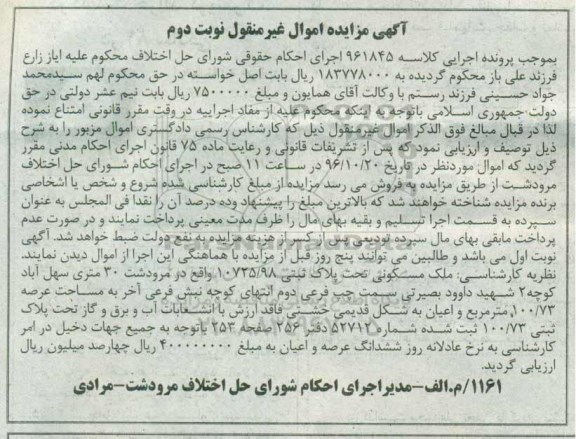 آگهی مزایده اموال غیرمنقول نوبت دوم
بموجب پرونده اجرایی کلاسه ۹۶۱۸۴۵ اجرای احکام حقوقی شورای حل اختلاف محکوم علیه ایاز زارع
فرزند علی باز محکوم گردیده به ۱۸۳۷۷۸۰۰۰ ریال بابت اصل خواسته در حق محکوم لهم سیدمحمد
جواد حسینی فرزند رستم با وکالت آقای همایون و مبلغ ۷۵۰۰۰۰۰ ریال بابت نیم عشر دولتی در حق
دولت جمهوری اسلامی باتوجه به اینکه محکوم علیه از مفاد اجراییه در وقت مقرر قانونی امتناع نموده
لذا در قبال مبالغ فوق الذکر اموال غیرمنقول ذیل که کارشناس رسمی دادگستری اموال مزبور را به شرح
ذیل توصیف و ارزیابی نمود که پس از تشریفات قانونی و رعایت ماده ۷۵ قانون اجرای احکام مدنی مقرر
گردید که اموال موردنظر در تاریخ ۹۶/۱۰/۲۰ در ساعت ۱۱ صبح در اجرای احکام شورای حل اختلاف
مرودشت از طریق مزایده به فروش می رسد مزایده از مبلغ کارشناسی شده شروع و شخص یا اشخاصی
برنده مزایده شناخته خواهند شد که بالاترین مبلغ را پیشنهاد وده درصد آن را نقدا فی المجلس به عنوان
سپرده به قسمت اجرا تسلیم و بقیه بهای مال را ظرف مدت معینی پرداخت نمایند و در صورت عدم
پرداخت مابقی بهای مال سپرده تودیعی پس از کسر از هزینه مزایده به نفع دولت ضبط خواهد شد. آگهی
نوبت اول می باشد و طالبین می توانند پنج روز قبل از مزایده با هماهنگی این اجرا از اموال دیدن نمایند.
نظریه کارشناسی: ملک مسکونی تحت پلاک ثبتی ۱۰۷۳۵/۹۸ واقع در مرودشت ۳۰ متری سهل آباد
کوچه۲ شهید داوود بصیرتی سمت چپ فرعی دوم انتهای کوچه نبش فرعی آخر به مساحت عرصه
۱۰۰/۷۳ مترمربع و اعیان به شکل قدیمی خشتی فاقد ارزش با انشعابات آب و برق و گاز تحت پلاک
ثبتی ۱۰۰/۷۳ ثبت شده شماره ۵۲۷۱۲ دفتر ۲۵۶ صفحه ۲۵۳ باتوجه به جمیع جهات دخیل در امر
کارشناسی به نرخ عادلانه روز ششدانگ عرصه و اعیان به مبلغ ۴۰۰۰۰۰۰۰۰ ریال چهارصد میلیون ریال
ارزیابی گردید.
۱۱۶۱/م.الف-مدیراجرای احکام شورای حل اختلاف مرودشت-مرادی